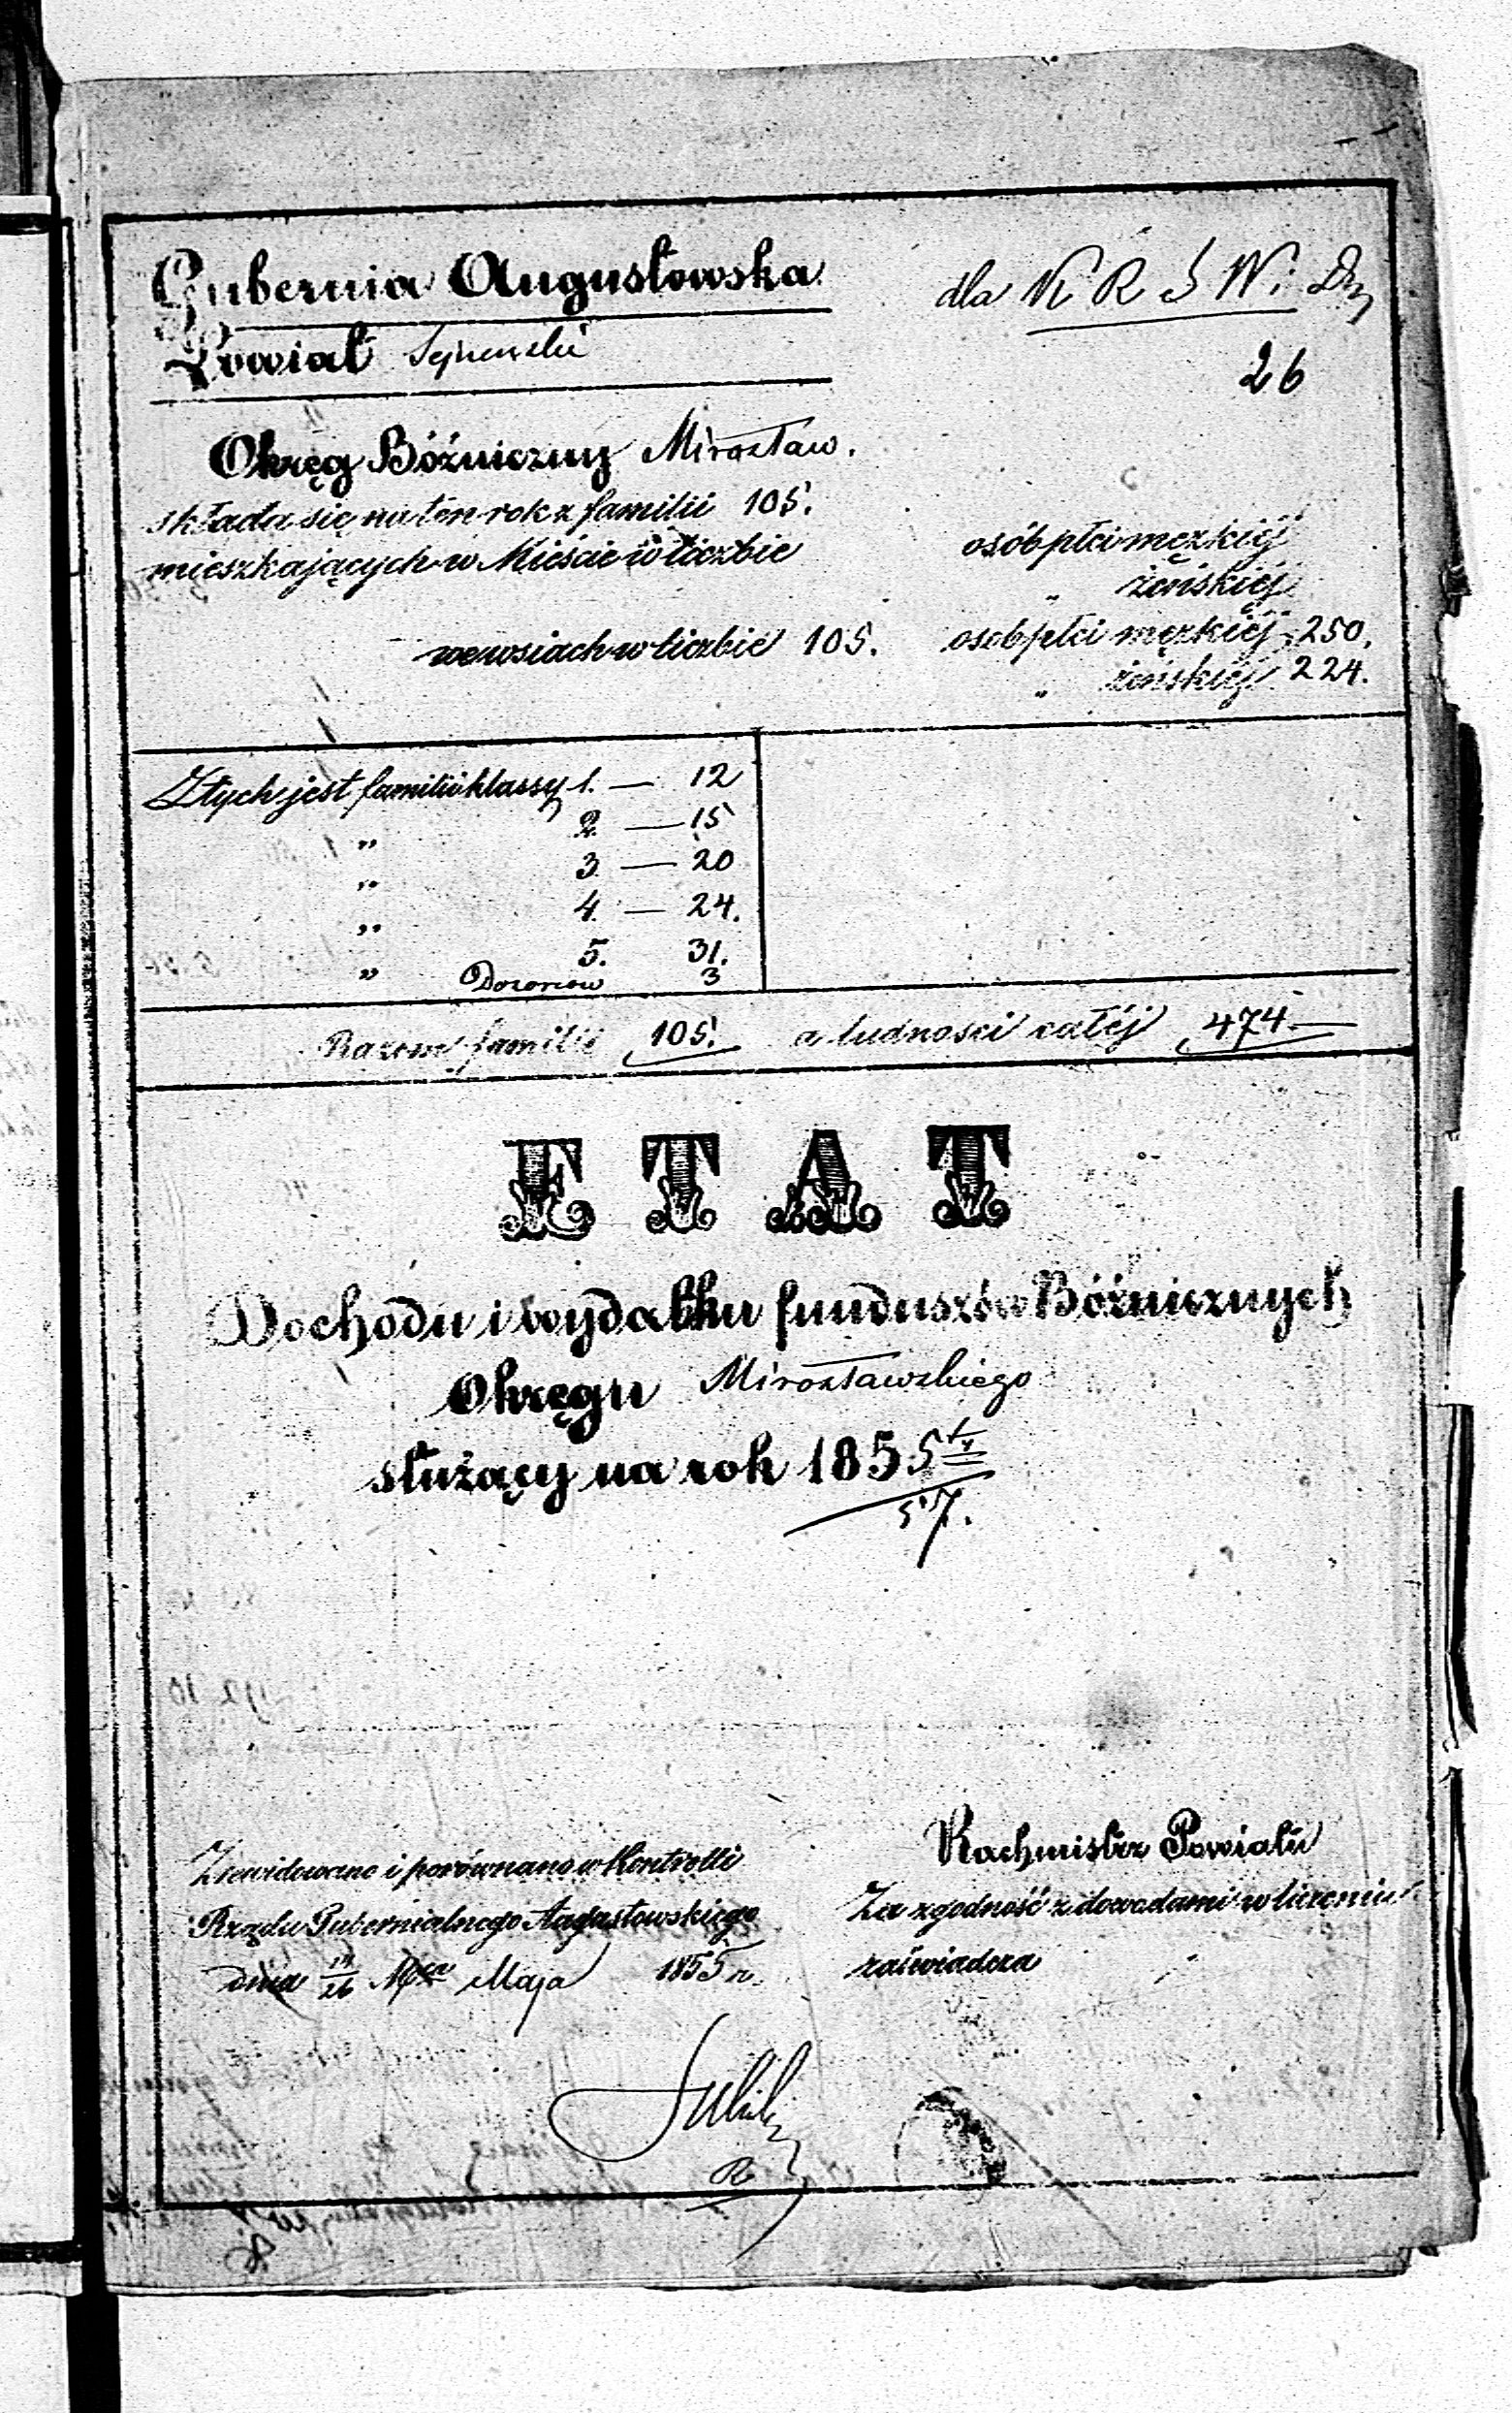 Gubernia Augustowska
dla K R S W i D
Powiat Sejneński
26
Okręg Bóżniczny Mirosław.
składa się na ten rok z familii 105.
mieszkających w Mieście w liczbie osób płci męzkiéj
„ żeńskiéj
we wsiach w liczbie 105. osób płci męzkiéj 250.
„ żeńskiéj 224.
Z tych jest familii klassy 1. — 12
„ 2 — 15
„ 3 — 20
„ 4 — 24.
„ 5. 31.
Dozorców 3
Razem familii 105. a ludności całéj 474 —
ETAT
Dochodu i wydatku funduszów Bóżnicznych
Okręgu Mirosławskiego
służący na rok 1855
57.
Zrewidowano i porównano w Kontrolli
Rządu Gubernialnego Augustowskiego
dnia 14/26 Mca Maja 1855 r.
Rachmistrz Powiatu
Za zgodność z dowodami w liczeniu
zaświadcza